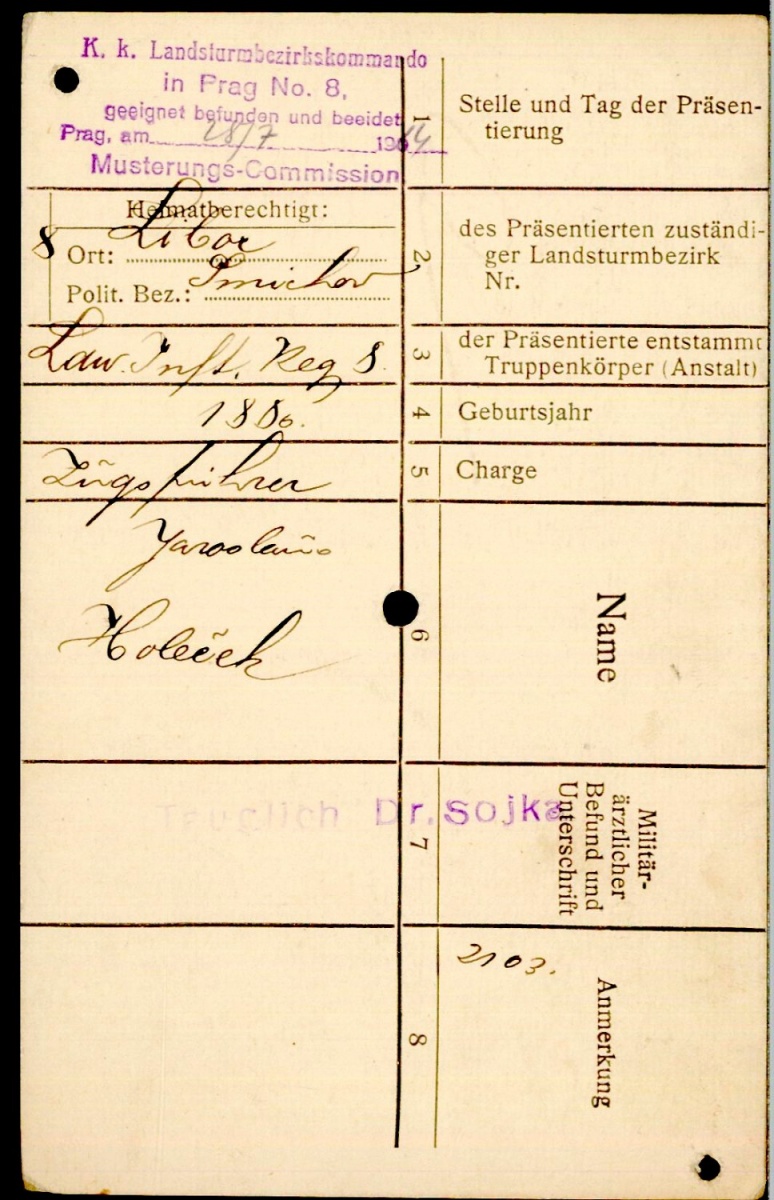 K. k. Landsturmbezirkskommando
in Prag No. 8,
geeignet befunden und beeidet
Prag, am 28/7 1914
Musterungs-Commission
1
Stelle und Tag der Präsen-
tierung
Heimatberechtigt:
8
Ort: Liboc
Polit. Bez.: Smichov
2
des Präsentierten zuständi-
ger Landsturmbezirk
Nr.
Ldw. Inft. Reg 8.
3
der Präsentierte entstammt
Truppenkörper (Anstalt)
1886.
4
Geburtsjahr
Zugsführer
5
Charge
Jaroslav
Holeček
6
Name
Tauglich Dr. Sojka
7
Militär-
ärztlicher
Befund und
Unterschrift
2103.
8
Anmerkung